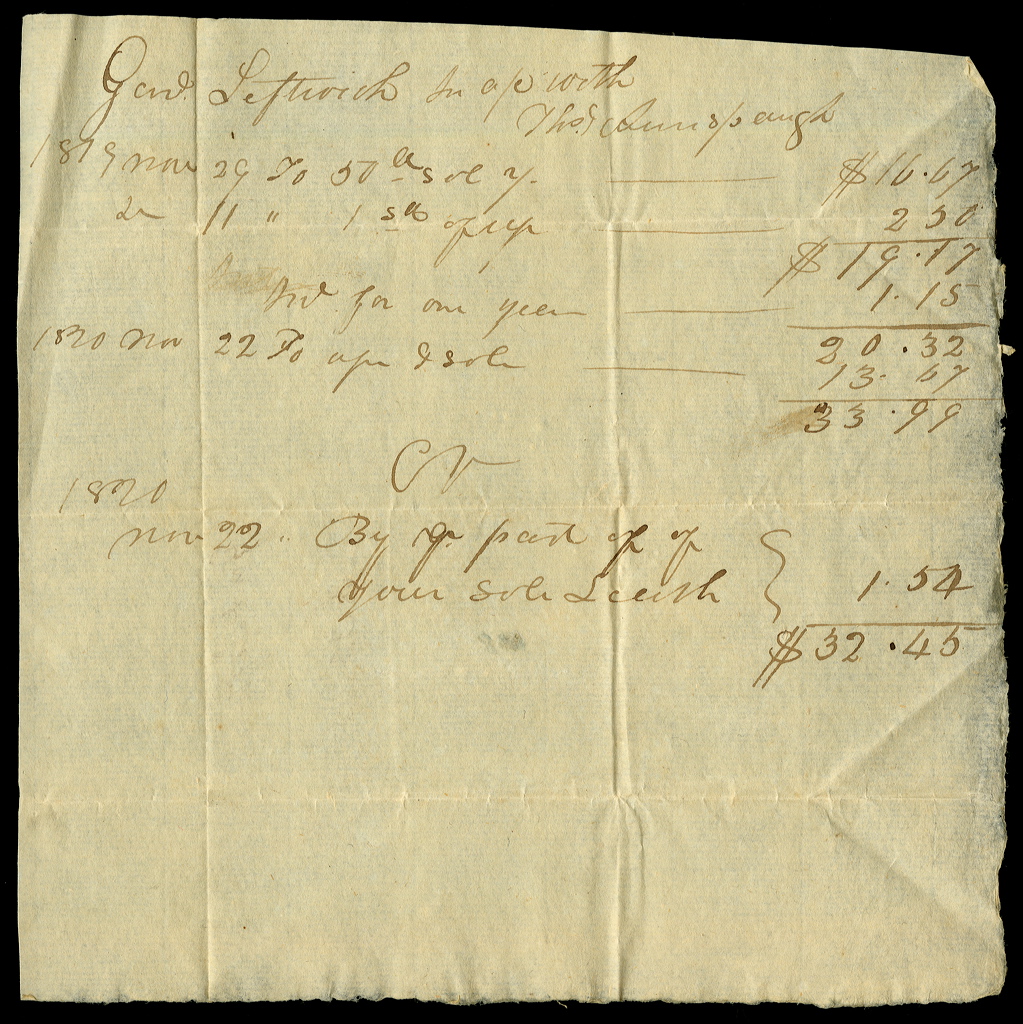 Genl. Leftwich In a/c with
Thos. Aunspaugh
1819 Nov 29 To 50 lb sole $16.67
Do 11 " 1 2 50
$ 19.17
Int for one year 1.15
1820 Nov 22 To upr & sole 20.32
13.67
33.99
Cr
1820
Nov 22 " By part of
your sole Leath } 1.54
$32.45